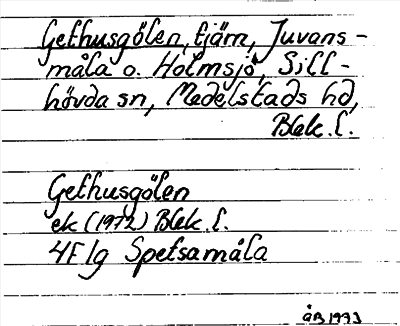 Gethusgölen, tjärn, Juvans-
måla o. Holmsjö, Sill-
hövda sn, Medelstads hd,
Blek. l.
Gethusgölen
ek (1972) Blek. l.
4F lg Spetsamåla
åB 1973